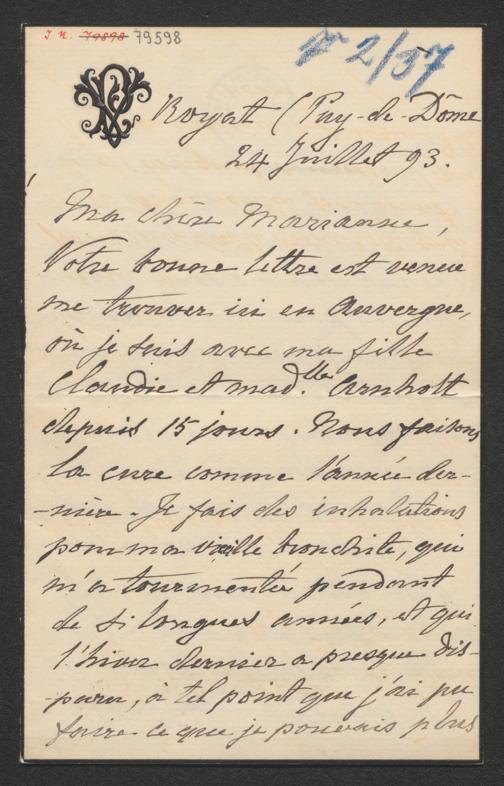 I.N. 79898 79598
2/57
Royat (Puy-de-Dôme
24 Juillet 93.
Ma chère Marianne,
Votre bonne lettre est venue
me trouver ici en Auvergne,
où je suis avec ma fille
Claudie et Mad.lle Arnholt
depuis 15 jours. Nous faisons
la cure comme l'année der-
-nière. Je fais des inhalations
pour ma vieille bronchite, qui
m'a tourmentée pendant
de si longues années, et qui
l'hiver dernier a presque dis-
-paru, à tel point que j'ai pu
faire ce que je pouvais plus